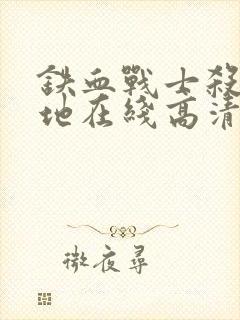 鉄血戰士殺
地在綫高清
微夜尋